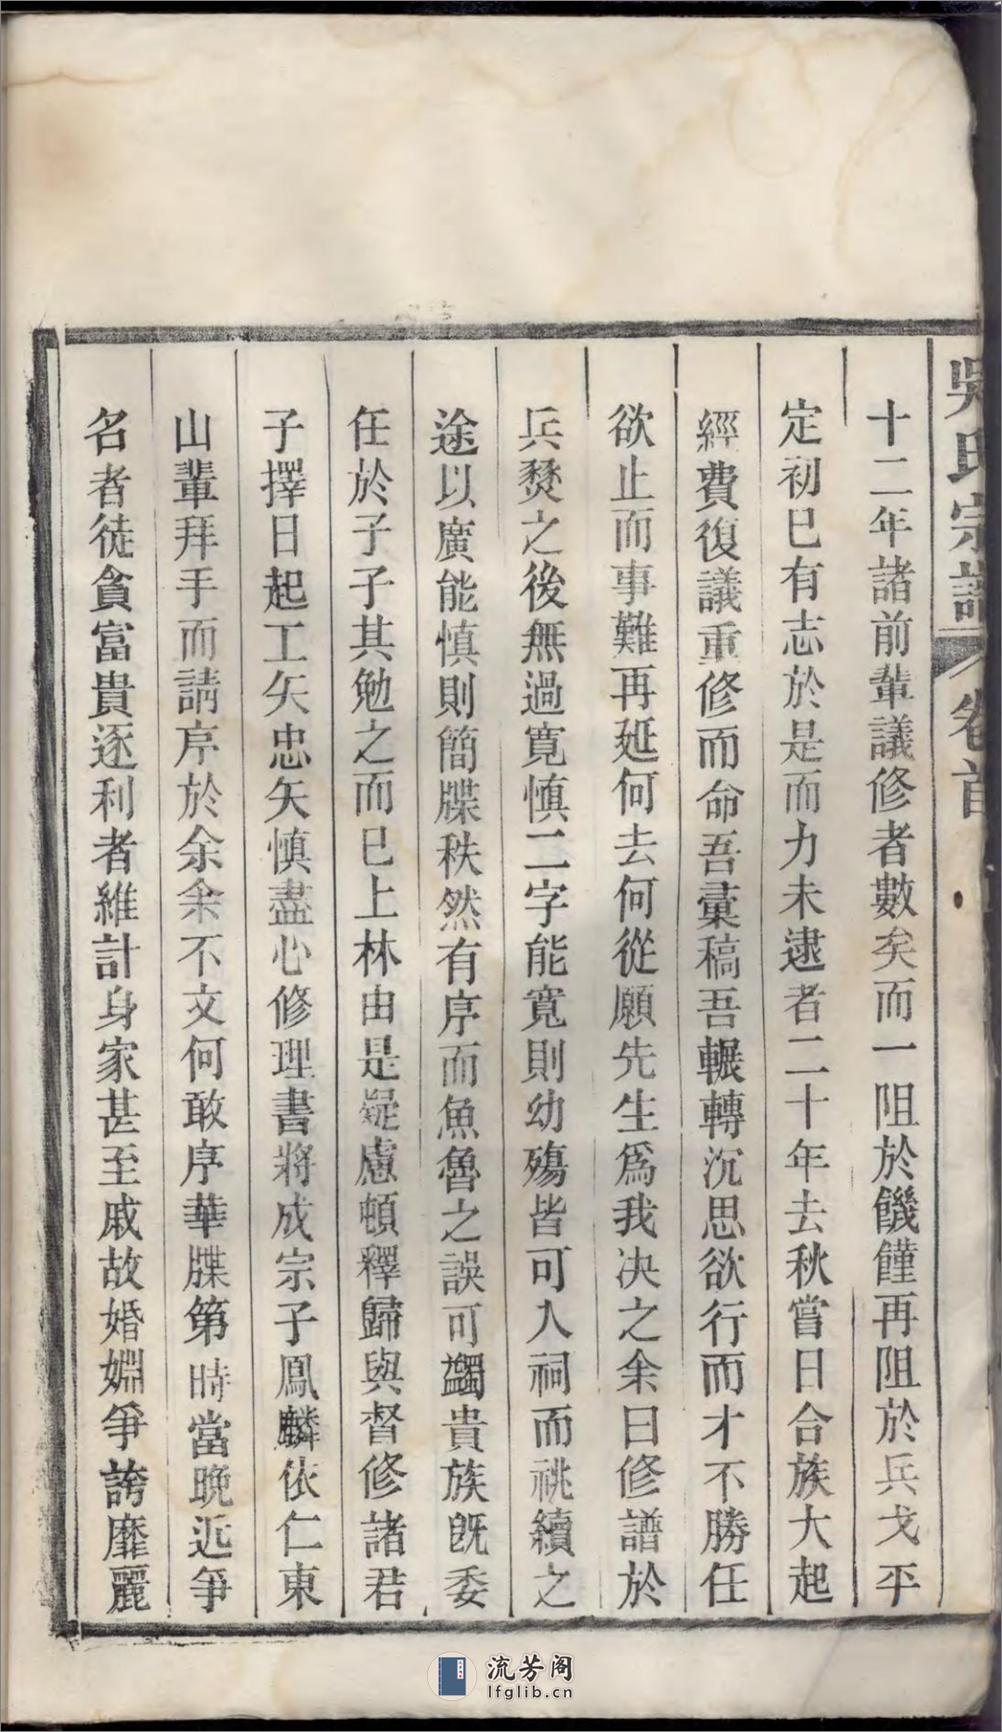 吳氏宗譜 卷首
十二年諸前輩議修者數矣而一阻於饑饉再阻於兵戈平
定初已有志於是而力未逮者二十年去秋嘗日合族大起
經費復議重修而命吾彙稿吾輾轉沉思欲行而才不勝任
欲止而事難再延何去何從願先生爲我决之余曰修譜於
兵燹之後無過寬慎二字能寬則幼殤皆可入祠而祧續之
途以廣能慎則簡牒秩然有序而魚魯之誤可蠲貴族旣委
任於子子其勉之而已上林由是疑慮頓釋歸與督修諸君
子擇日起工矢忠矢慎盡心修理書將成宗子鳳麟依仁東
山輩拜手而請序於余余不文何敢序華牒第時當晚近爭
名者徒貪富貴逐利者維計身家甚至戚故婚姻爭誇靡麗
流芳阁
lfglib.cn